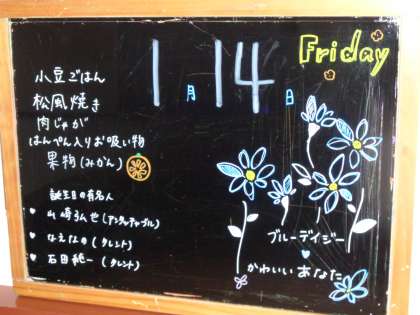 1月14日
Friday
小豆ごはん
松風焼き
肉じゃが
はんぺん入りお吸い物
果物(みかん)
誕生日の有名人
♥ 山崎弘也(アンタッチャブル)
♥ なえなの(タレント)
♥石田純一(タレント)
ブルーデイジー
♥
かわいいあなた